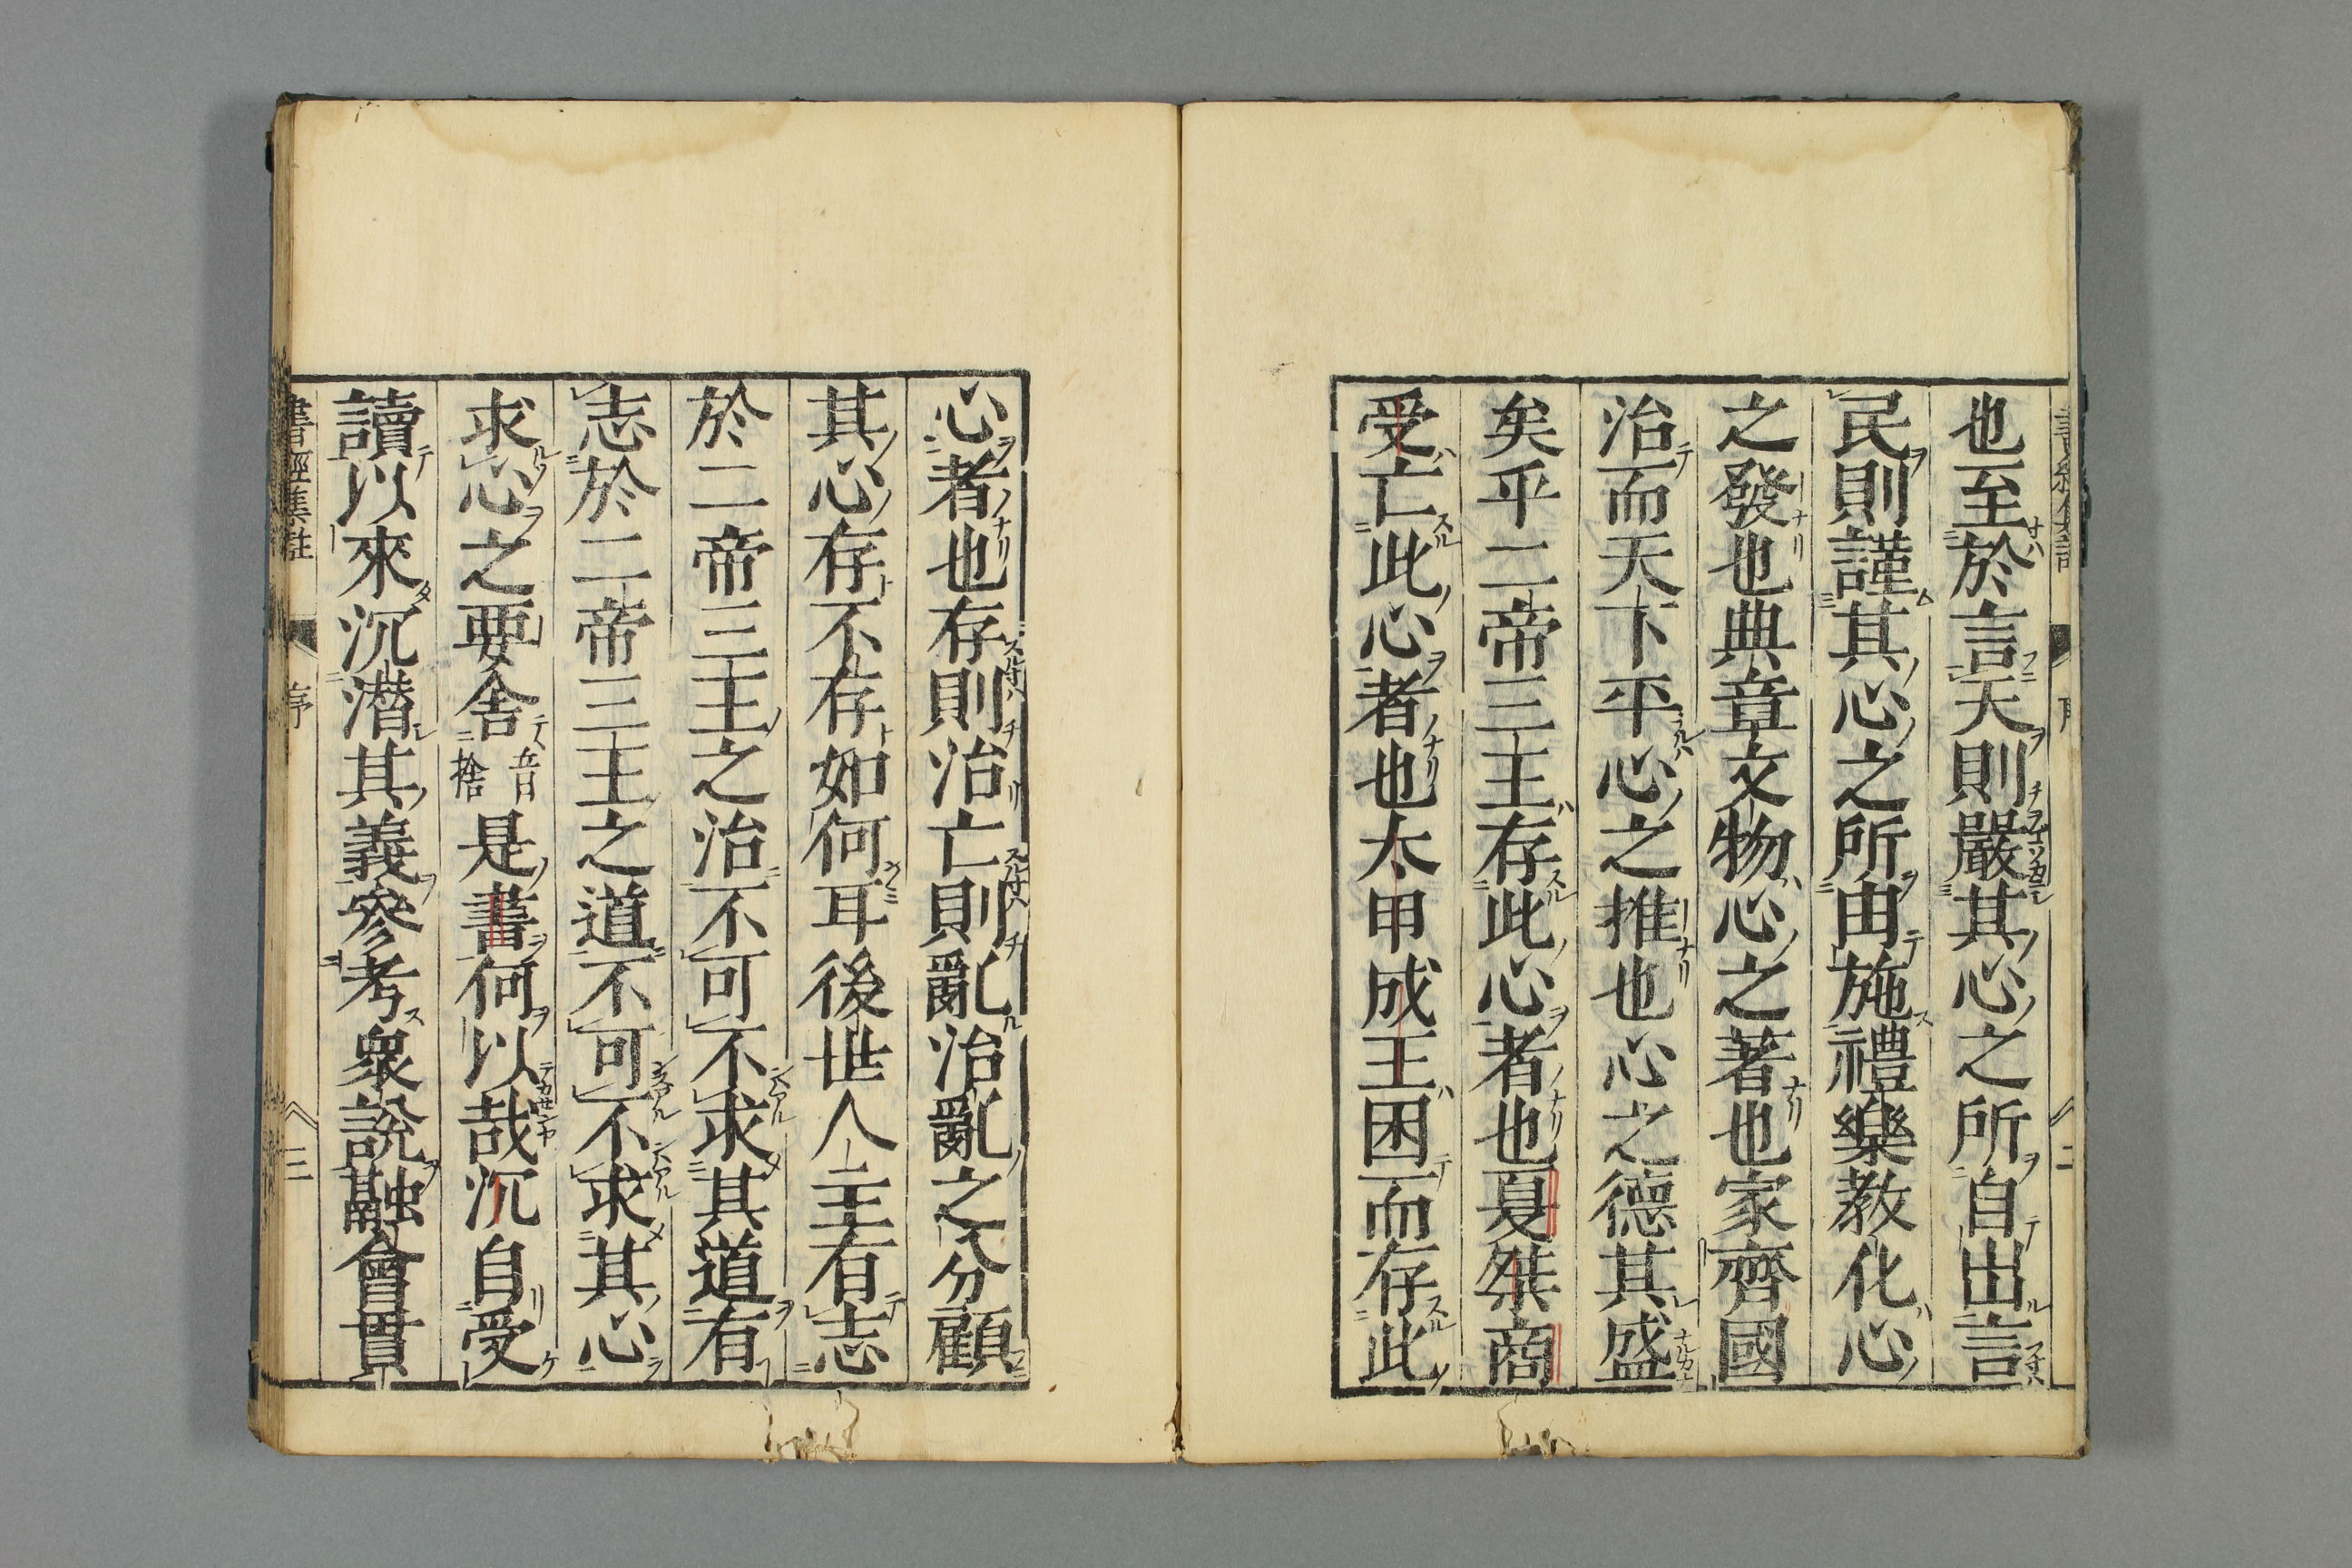 也至於言天則嚴其心之所自出言
民則謹其心之所由施禮樂教化心
之發也典章文物心之著也家齊國
治而天下平心之推也心之德其盛
矣乎二帝三王存此心者也夏桀商
受亡此心者也太甲成王困而存此
心者也存則治亡則亂治亂之分顧
其心存不存如何耳後世人主有志
於二帝三王之治不可不求其道有
志於二帝三王之道不可不求其心
求心之要舍音捨是書何以哉沉自受
讀以來沉潜其義參考衆說融會貫
書經集註 序 三